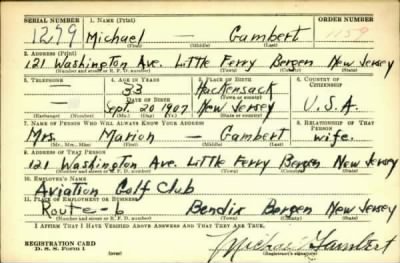 SERIAL NUMBER 1. NAME (Print) ORDER NUMBER
1279 Michael — Gambert 1159
(First) (Middle) (Last)
2. ADDRESS (Print)
121 Washington Ave. Little Ferry Bergen New Jersey
(Number and street or R. F. D. number) (Town) (County) (State)
3. TELEPHONE 4. AGE IN YEARS 5. PLACE OF BIRTH 6. COUNTRY OF CITIZENSHIP
— 33 Hackensack
(Town or county)
DATE OF BIRTH
— Sept. 20 1907 New Jersey U.S.A.
(Exchange) (Number) (Mo.) (Day) (Yr.) (State or country)
7. NAME OF PERSON WHO WILL ALWAYS KNOW YOUR ADDRESS 8. RELATIONSHIP OF THAT PERSON
Mrs. Marion — Gambert wife.
(Mr., Mrs., Miss) (First) (Middle) (Last)
9. ADDRESS OF THAT PERSON
121 Washington Ave. Little Ferry Bergen New Jersey
(Number and street or R. F. D. number) (Town) (County) (State)
10. EMPLOYER'S NAME
Aviation Golf Club
11. PLACE OF EMPLOYMENT OR BUSINESS
Route-6 Bendix Bergen New Jersey
(Number and street or R. F. D. number) (Town) (County) (State)
I AFFIRM THAT I HAVE VERIFIED ABOVE ANSWERS AND THAT THEY ARE TRUE.
REGISTRATION CARD
D. S. S. Form 1 (over) Michael Gambert
(Registrant's signature)